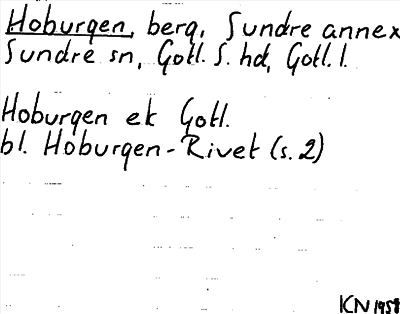 Hoburgen, berg, Sundre annex
Sundre sn, Gotl. S. hd, Gotl. l.
Hoburgen ek Gotl.
bl. Hoburgen-Rivet (s. 2)
KN 1958